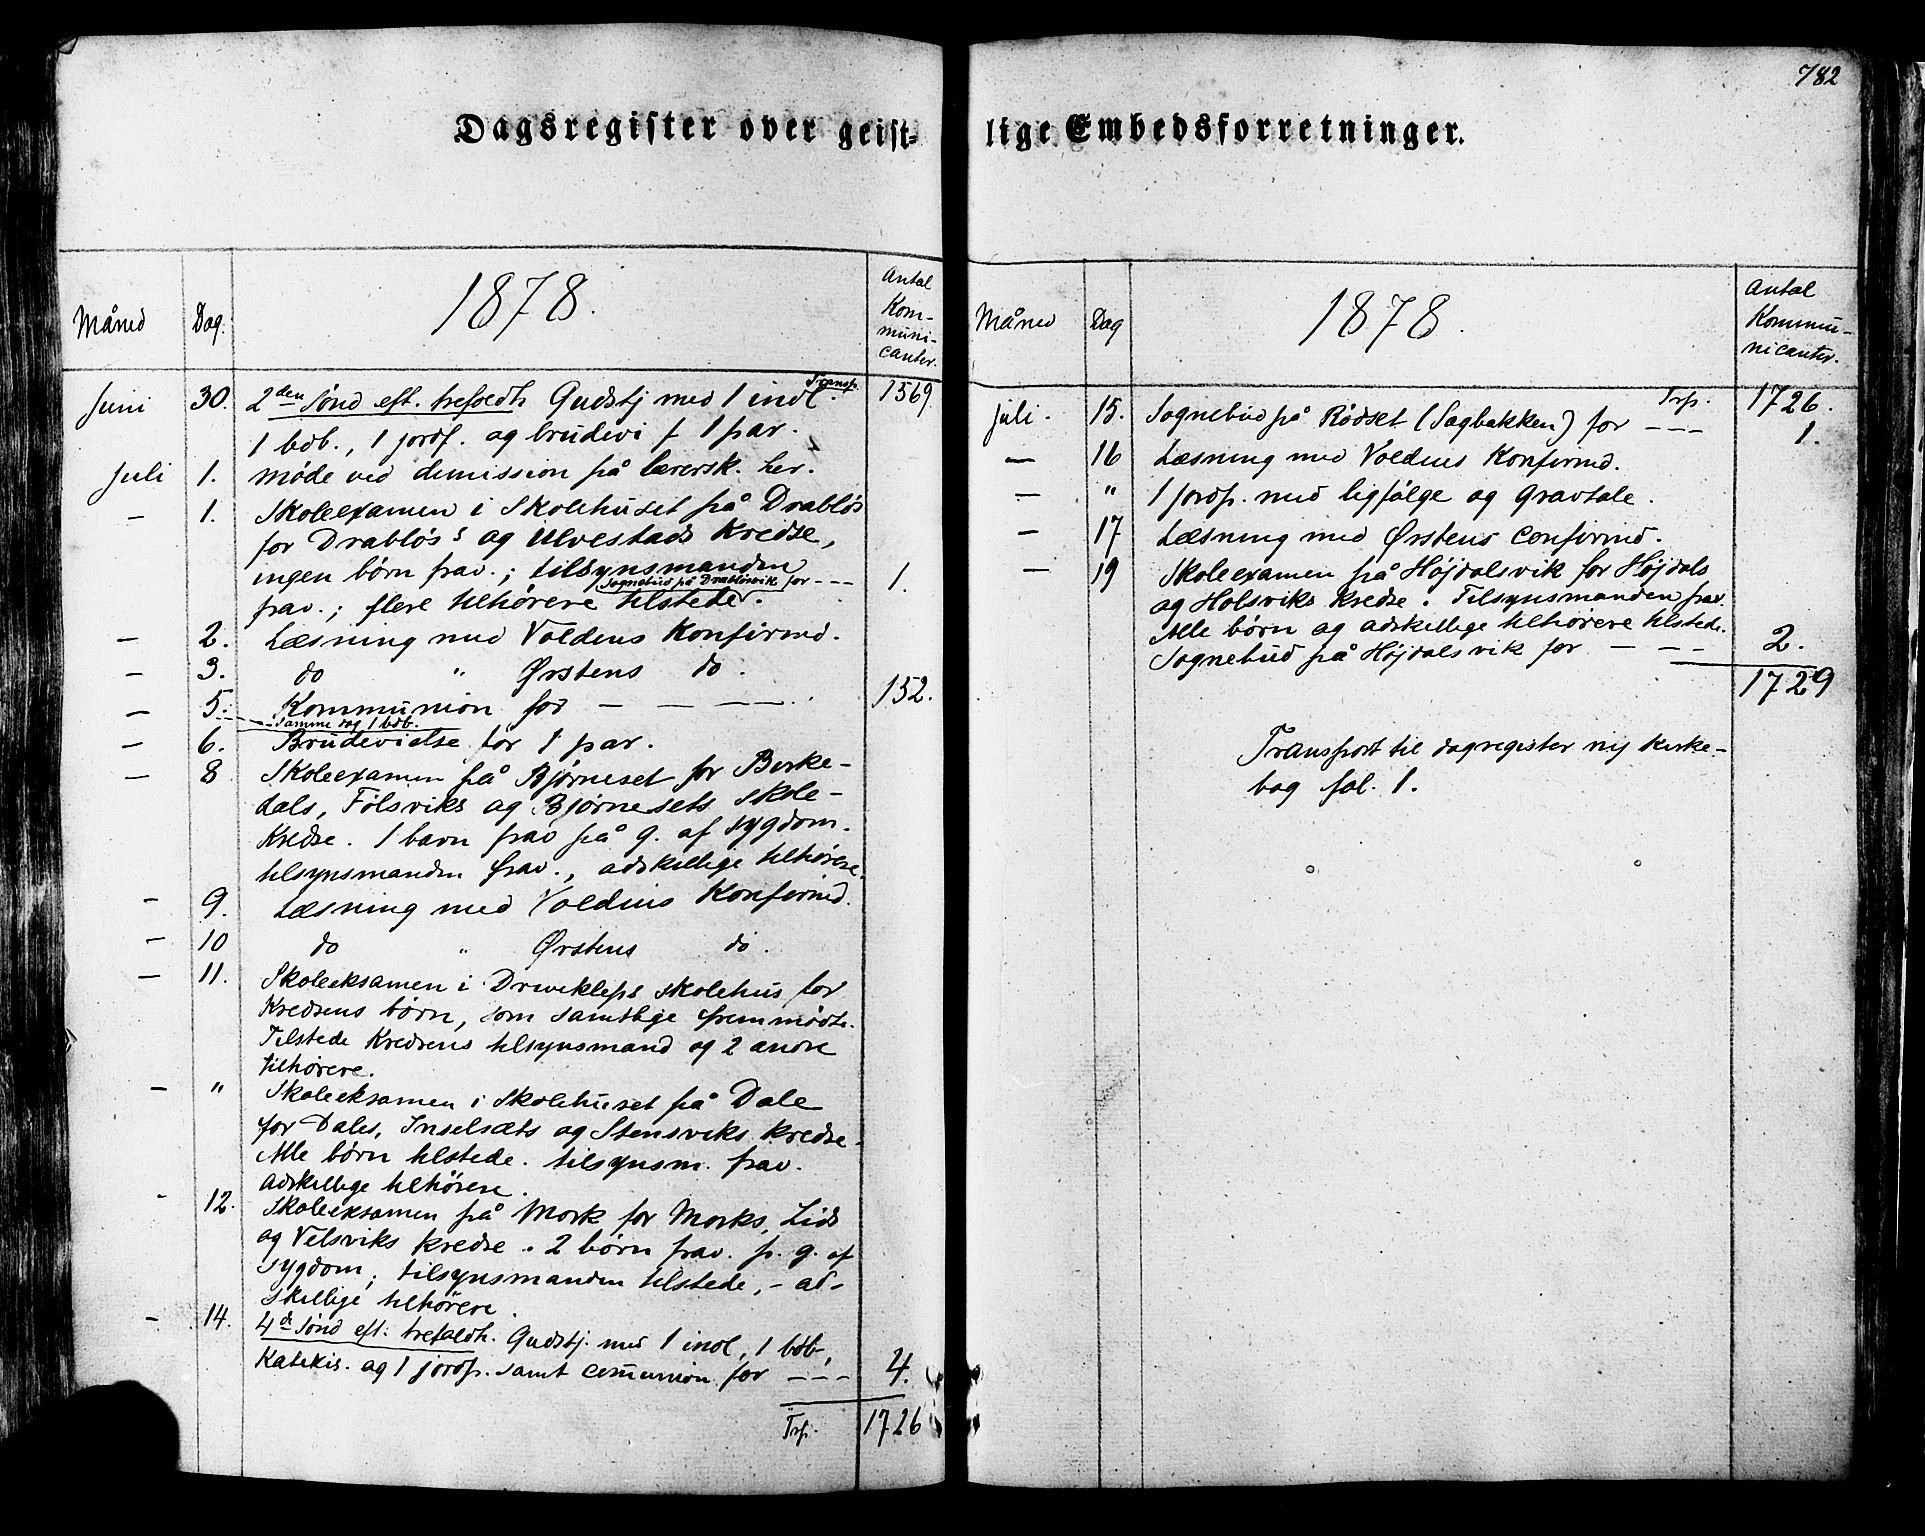 782
Dagsregister over geist-
lige Embedsforretninger.
Måned Dag. 1878. Antal Kom-
muni-
canter.
Juni 30. 2den sønd eft. trefsedh Gudstj med 1 indl. Transp. 1569
1 bdb., 1 jordf. og brudevi f 1 par.
Juli 1. møde ved dimission på lærersk. her.
– 1. Skoleexamen i Skolehuset på Drabløs
for Drabløs's og Ulvestads Kredse,
ingen børn frav.; tilsynsmanden
sognebud på Drabløsvik for --- 1.
frav.; flere tilhørere tilstede.
– 2. Læsning med Voldens Konfirmd.
– 3. do " Ørstens do.
– 5. Kommunion for – – – – 152.
samme dag 1 bdb.
– 6. Brudevielse for 1 par.
– 8 Skoleexamen på Bjørneset for Birke-
dals, Fölsviks og Bjørnesets Skole-
Kredse. 1 barn frav på g. af sygdom.
tilsynsmanden frav., adskillige tilhørere.
– 9. Læsning med Voldens Konfirmd.
– 10 do " Ørstens do.
– 11. Skoleeksamen i Drivekleps skolehus for
Kredsens børn, som samtlige fremmødte.
Tilstede Kredsens tilsynsmand og 2 andre
tilhørere.
– " Skoleeksamen i Skolehuset på Dale
for Dales, Inselsæts og Stensviks Kredse.
Alle børn tilstede. tilsynsm. frav.
adskillige tilhörere.
- 12. Skoleeksamen på Mork for Morks, Lids
og Velsviks Kredse. 2 børn frav. p. g. af
sygdom; tilsynsmanden tilstede, – ad-
skillige tilhörere.
– 14. 4de sønd eft: trefoldh. Gudstj. med 1 indl, 1 bdb,
Katekis. og 1 jordf. samt comunion for --- 4.
Trsp. 1726
Måned Dag 1878. Antal
Kommu-
nicanter.
Trsp. 1726.
juli. 15. Sognebud på Rødset (Sagbakken) for --- 1.
– 16 Læsning med Voldens Konfirmd.
– " 1 jordf. med ligfølge og Gravtale.
– 17 Læsning med Ørstens confirmd.
– 19 Skoleexamen på Højdalsvik for Højdals
og Holsviks Kredse. Tilsynsmanden frav.
Alle børn og adskillige tilhörere tilstede.
Sognebud på Højdalsvik for – – – 2.
1729
Transport til dagregister ny kirke-
bog fol. 1.